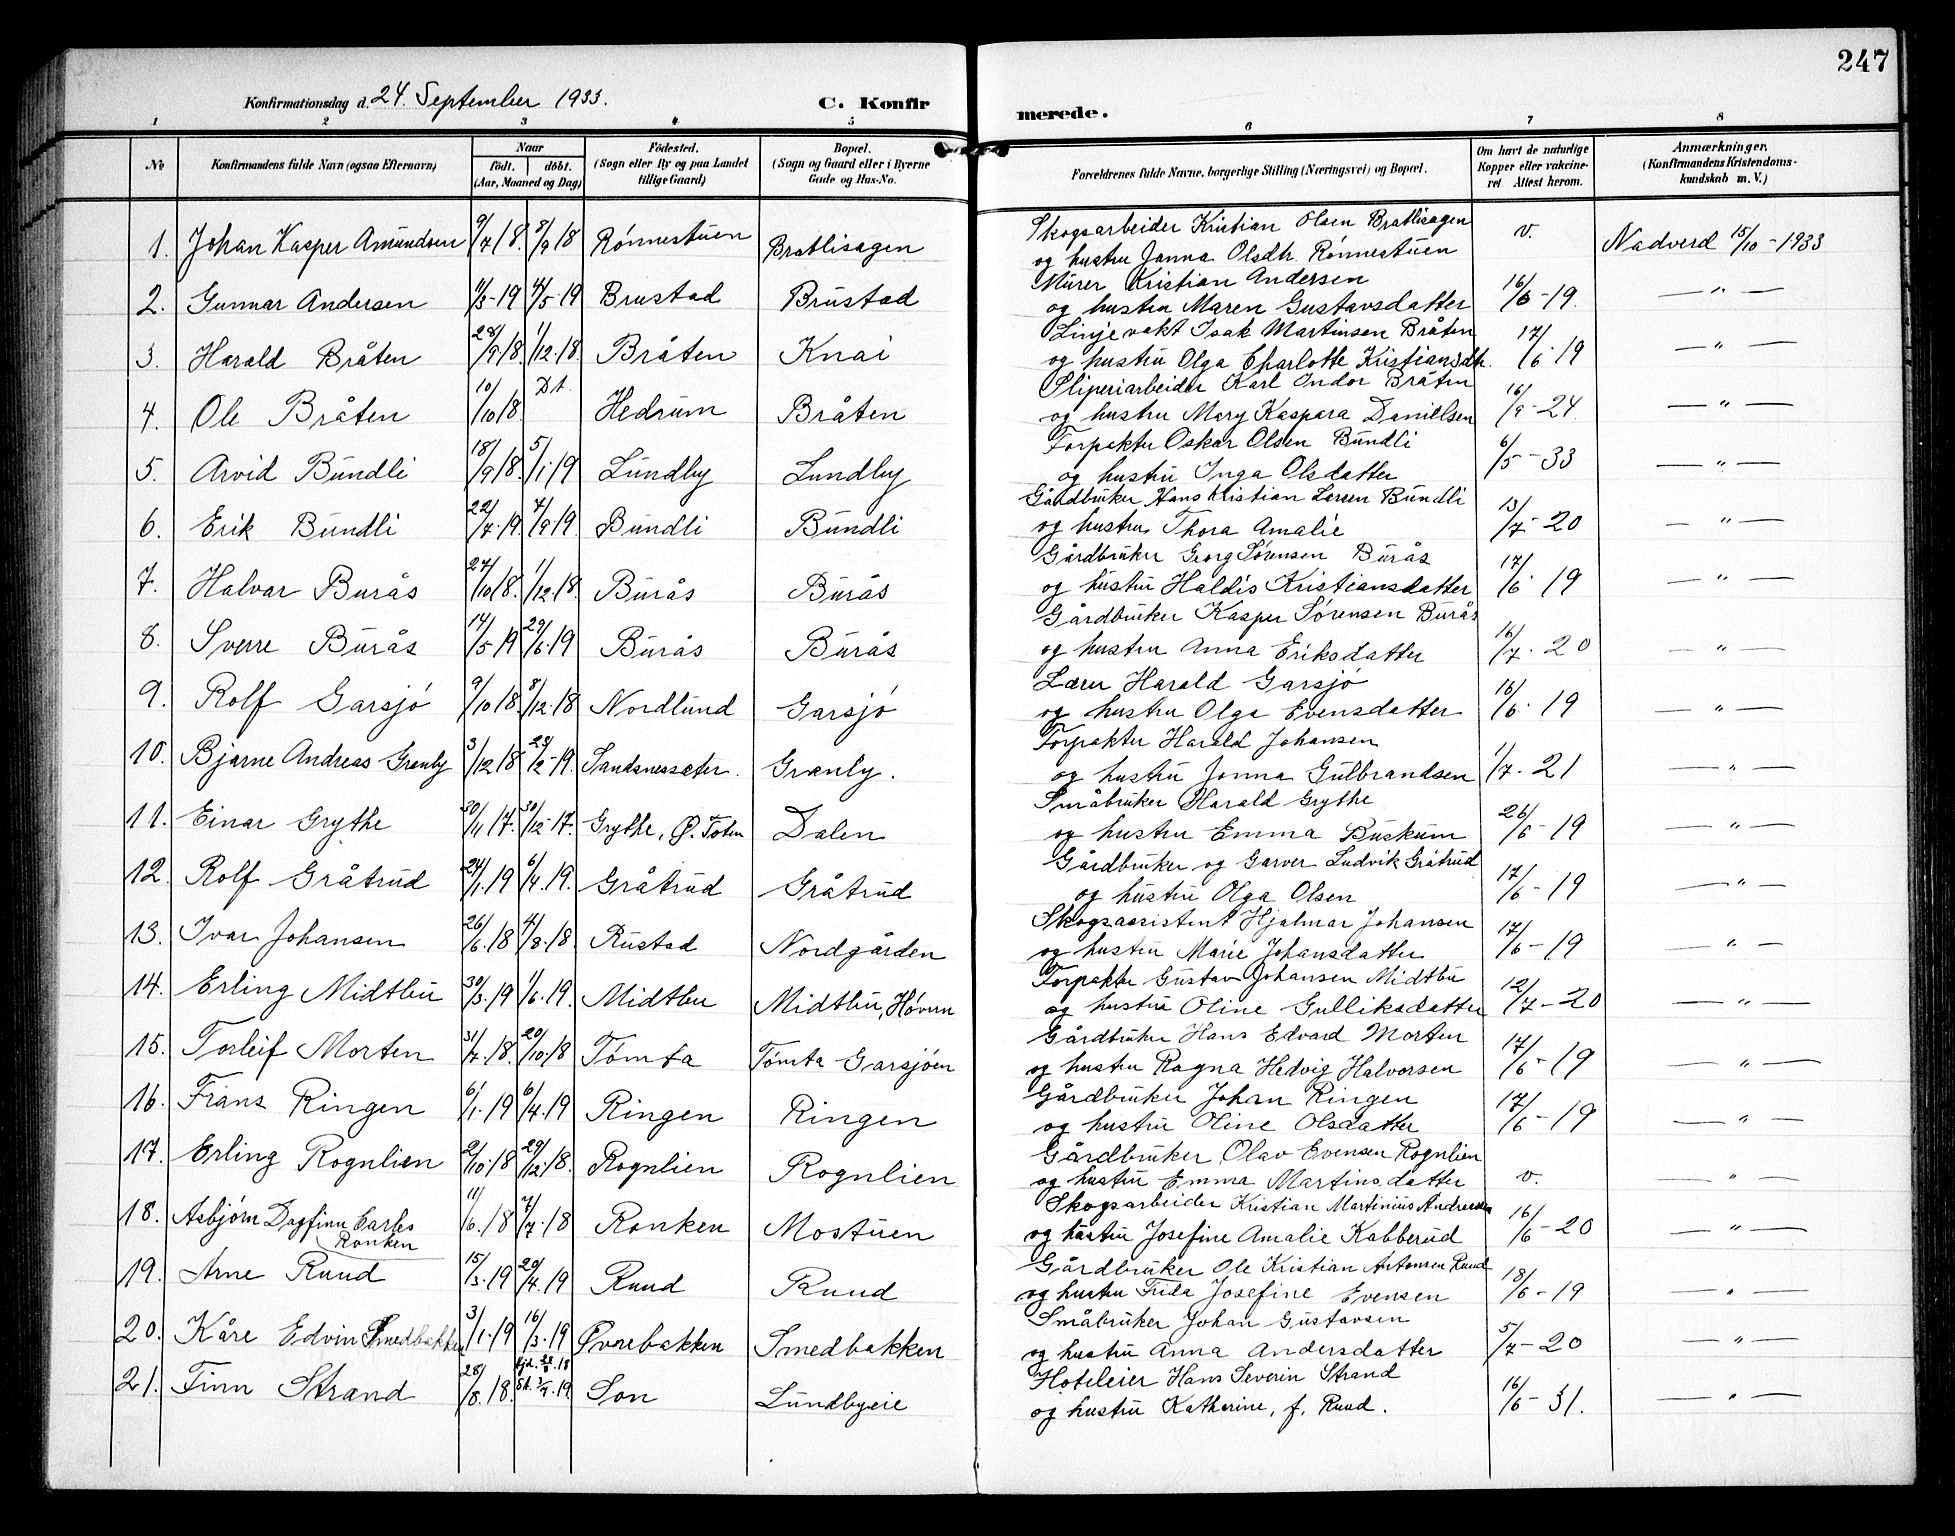 247
Konfirmationsdag d. 24. September 1933.
C. Konfirmerede.
1 2 3 4 5 6 7 8
No
Konfirmandens fulde Navn (ogsaa Efternavn)
Naar
født. døbt.
(Aar, Maaned og Dag)
Födested.
(Sogn eller By og paa Landet
tillige Gaard)
Bopæl.
(Sogn og Gaard eller i Byerne
Gade og Hus-No.
Forældrenes fulde Navne, borgerlige Stilling (Næringsvei) og Bopæl.
Om havt de naturlige
Kopper eller vakcine-
ret Attest herom.
Anmærkninger.
(Konfirmandens Kristendoms-
kundskab m. V.)
1. Johan Kasper Amundsen 9/7 18. 8/9 18 Rønnestuen Bratlisagen Skogsarbeider Kristian Olsen Bratlisagen v. Nadverd 15/10-1933
og hustru Janna Olsdtr. Rønnestuen
2. Gunnar Andersen /3-19 4/5-19 Brustad Brustad Murer Kristian Andersen 16/6-19. — " —
og hustru Maren Gustavsdatter
3. Harald Bråten 28/9 18. 1/12.18. Bråten Knai Linjevakt Isak Martinsen Bråten 17/6-19 — " —
og hustru Olga Charlotte Kristiansdtr.
4. Ole Bråten 10/10 18. Dt. Hedrum Bråten Sliperiarbeider Karl Ondor Bråten 16/9-24. — " —
og hustru Mary Kaspara Daniellsen
5. Arvid Bundli 18/9 18. 5/1 19 Lundby Lundby Forpakter Oskar Olsen Bundli 6/5-33 — " —
og hustru Inga Olsdatter
6. Erik Bundli 22/7.19. 7/9.19. Bundli Bundli Gårdbruker Hans Kristian Larsen Bundli 13/7-20 — " —
og hustru Thora Amalie
7. Halvar Burås 27/10 18. 1/12.18. Burås Burås Gårdbruker Georg Sørensen Burås 17/6-19 — " —
og hustru Haldis Kristiansdatter
8. Sverre Burås 14/5 19 29/6.19 Burås Burås Gårdbruker Kasper Sørensen Burås 16/7.20 — " —
og hustru Anna Eriksdatter
9. Rolf Garsjø 9/10 18. 8/12.18 Nordlund Garsjø Lærer Harald Garsjø 16/6.19 — " —
og hustru Olga Evensdatter
10. Bjarne Andreas Granby 3/12 18 23/2-19. Sandsnessæter. Granby. Forpakter Harald Johansen 1/7.21 — " —
og hustru Janna Gulbrandsen
11. Einar Grythe 30/11 17. 30/12-17. Grythe, Ø. Toten Dalen Småbruker Harald Grythe 26/6-19 — " —
og hustru Emma Buskum
12. Rolf Gråtrud 24/1.19 6/4.19. Gråtrud Gråtrud Gårdbruker og Garver Ludvik Gråtrud 17/6-19 — " —
og hustru Olga Olsen
13. Ivar Johansen 26/6.18 4/8.18. Rustad Nordgården Skogsassistent Hjalmar Johansen 17/6-19 — " —
og hustru Marie Johansdatter
14. Erling Midtbu 30/3.19 1/6.19. Midtbu Midtbu, Høvern Forpakter Gustav Johansen Midtbu 12/7-20 — " —
og hustru Oline Gulliksdatter
15. Torleif Morten 31/7.18. 20/10.18 Tømta Tømta Garsjøen Gårdbruker Hans Edvard Morten 17/6-19 — " —
og hustru Ragna Hedvig Halvorsen
16. Frans Ringen 6/1.19 6/4.19 Ringen Ringen Gårdbruker Johan Ringen 17/6-19 — " —
og hustru Oline Olsdatter
17. Erling Rognlien 2/10.18 29/12.18. Rognlien Rognlien Gårdbruker Olav Evensen Rognlien v. — " —
og hustru Emma Martinsdatter
18. Asbjørn Dagfinn Carles 11/6.18 7/7.18 Ronken Mostuen Skogsarbeider Kristian Martinius Andresen 16/6-20 — " —
Ronken og hustru Josefine Amalie Kabberud
19. Arne Ruud 15/3.19 20/4.19 Ruud Ruud Gårdbruker Ole Kristian Antonsen Ruud 18/6-19 — " —
og hustru Frida Josefine Evensen
20. Kåre Edvin Smedbakken 3/1.19 16/3.19 Øvrebakken Smedbakken Småbruker Johan Gustavsen 5/7-20 — " —
og hustru Anna Andersdatter
21. Finn Strand 28/8.18. Son Lundbyeie Hoteleier Hans Severin Strand 16/6-31. — " —
og hustru Katherine, f. Ruud.